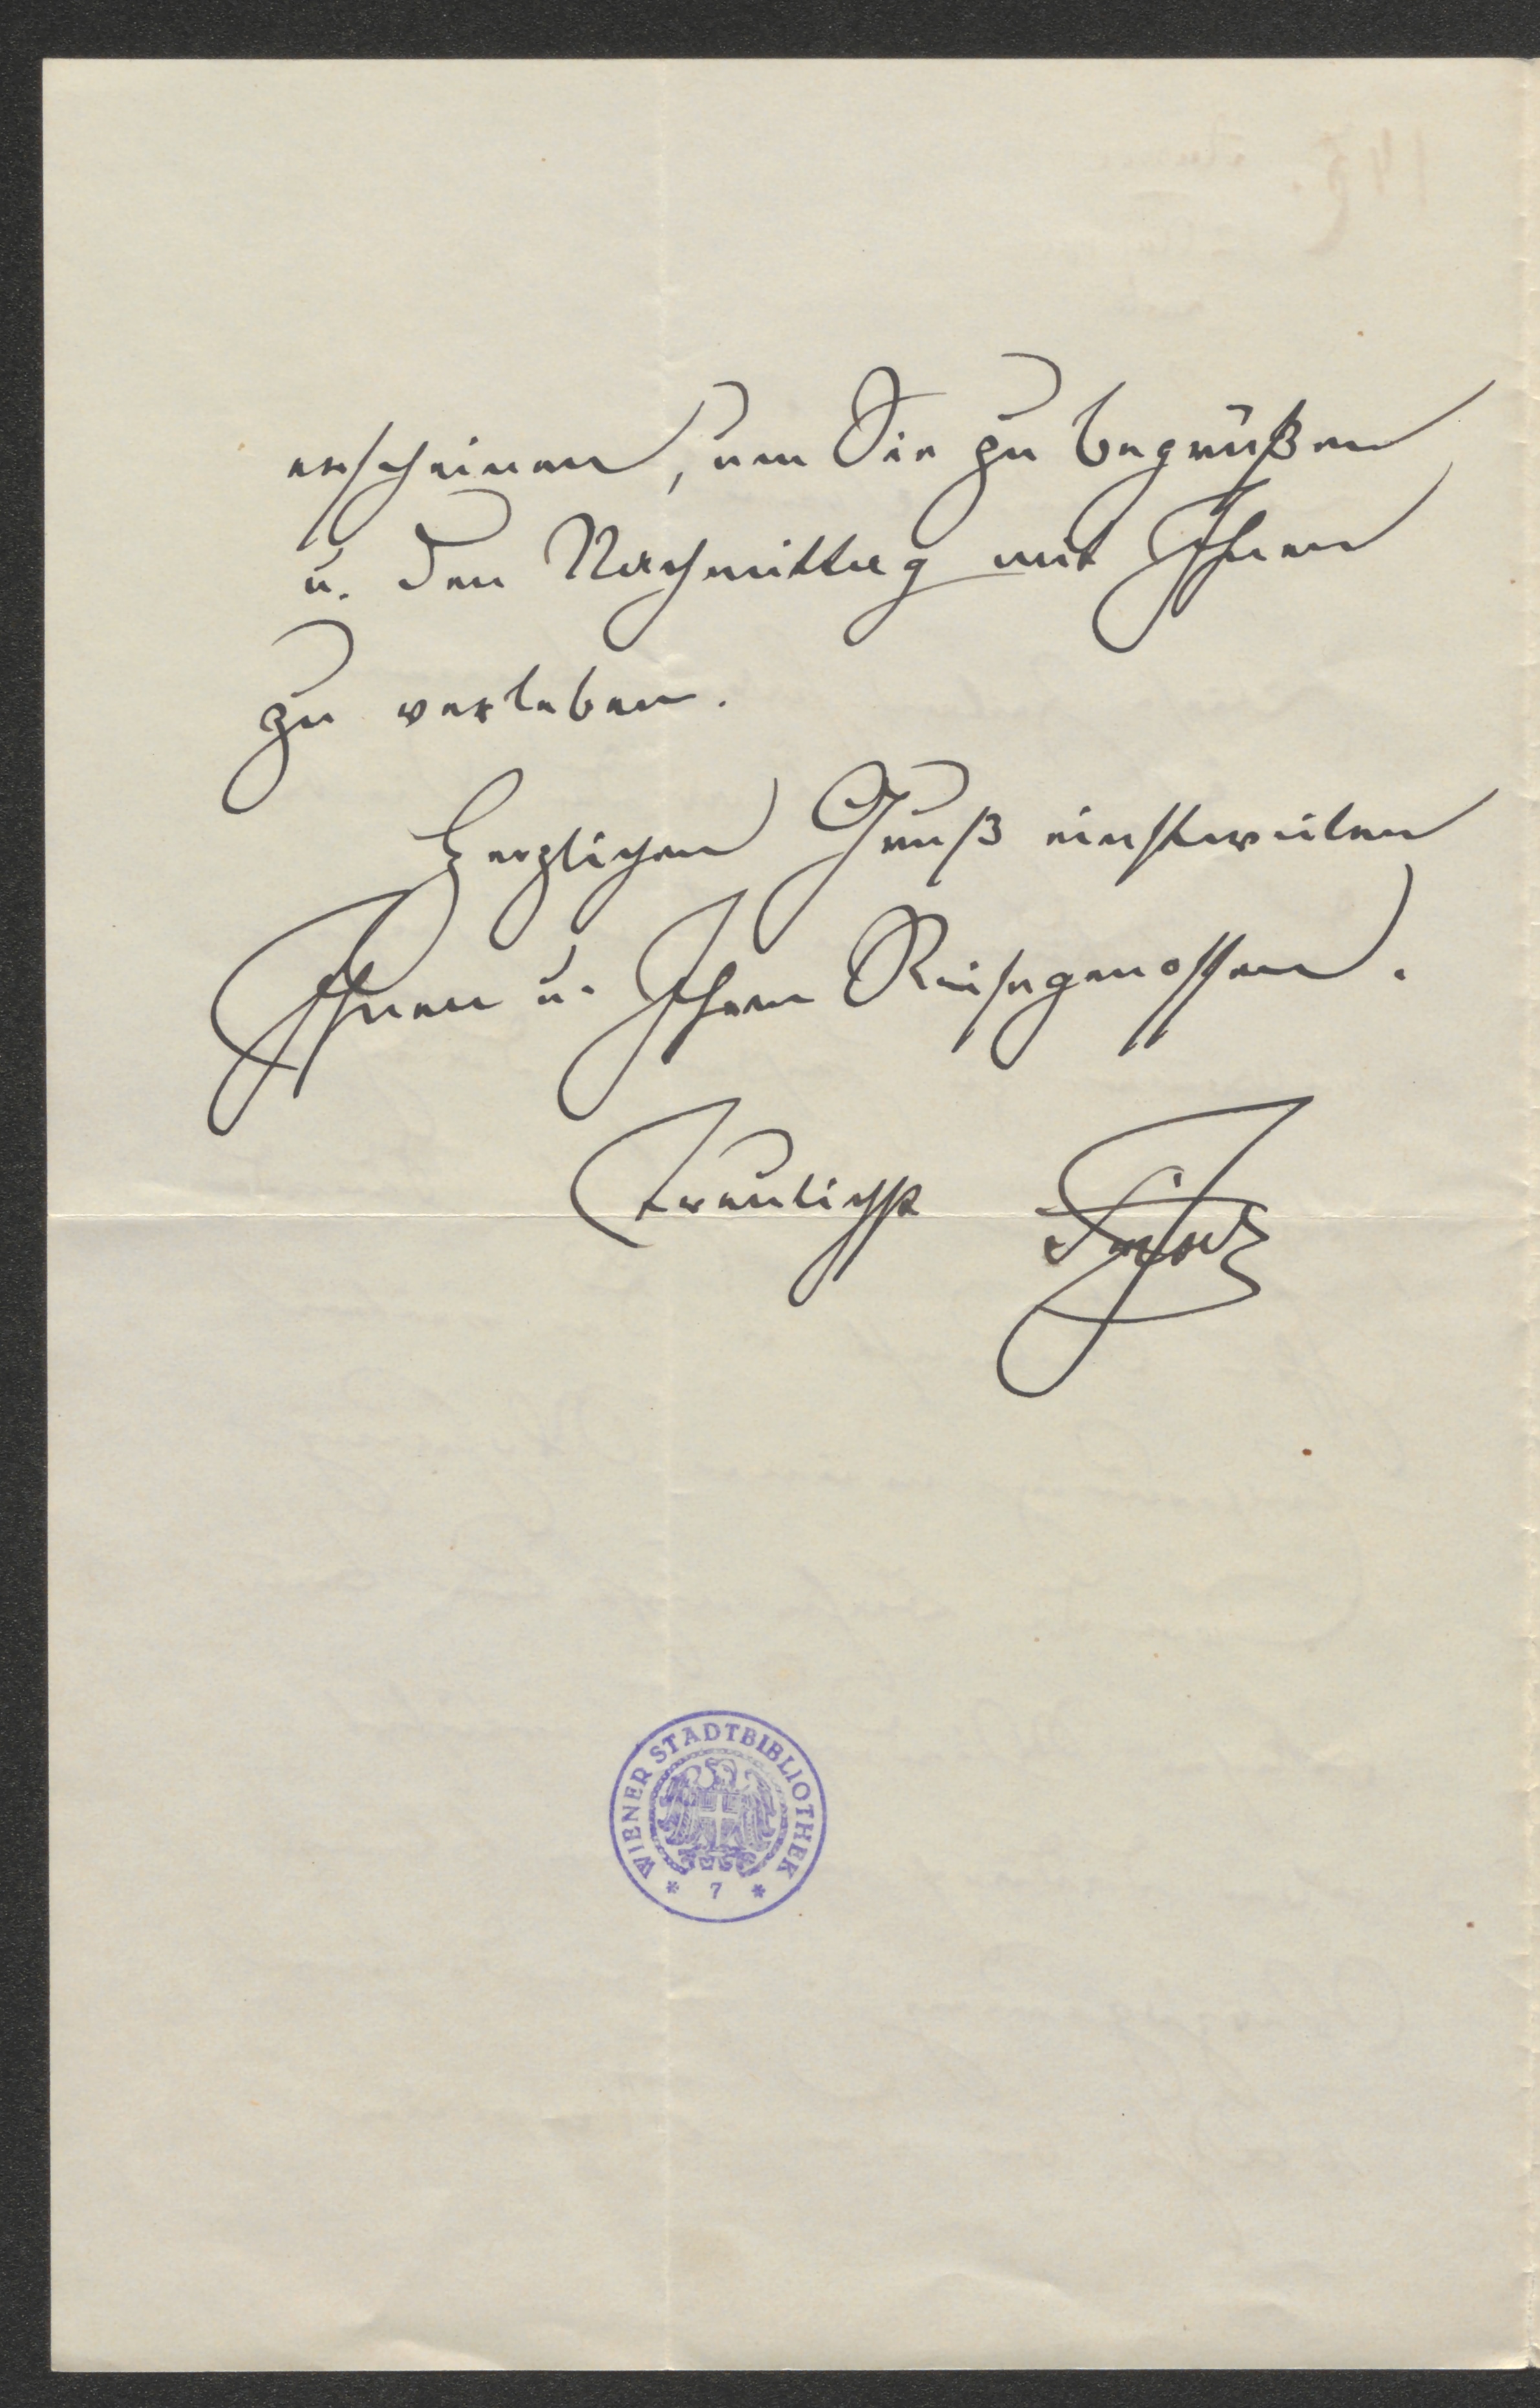 erscheinen, um Sie zu begrüßen
u. den Nachmittag mit Ihnen
zu verleben.
Herzlichen Gruß einstweilen
Ihnen u. Ihren Reisegenossen.
Treulichst
WIENER STADTBIBLIOTHEK
* 7 *